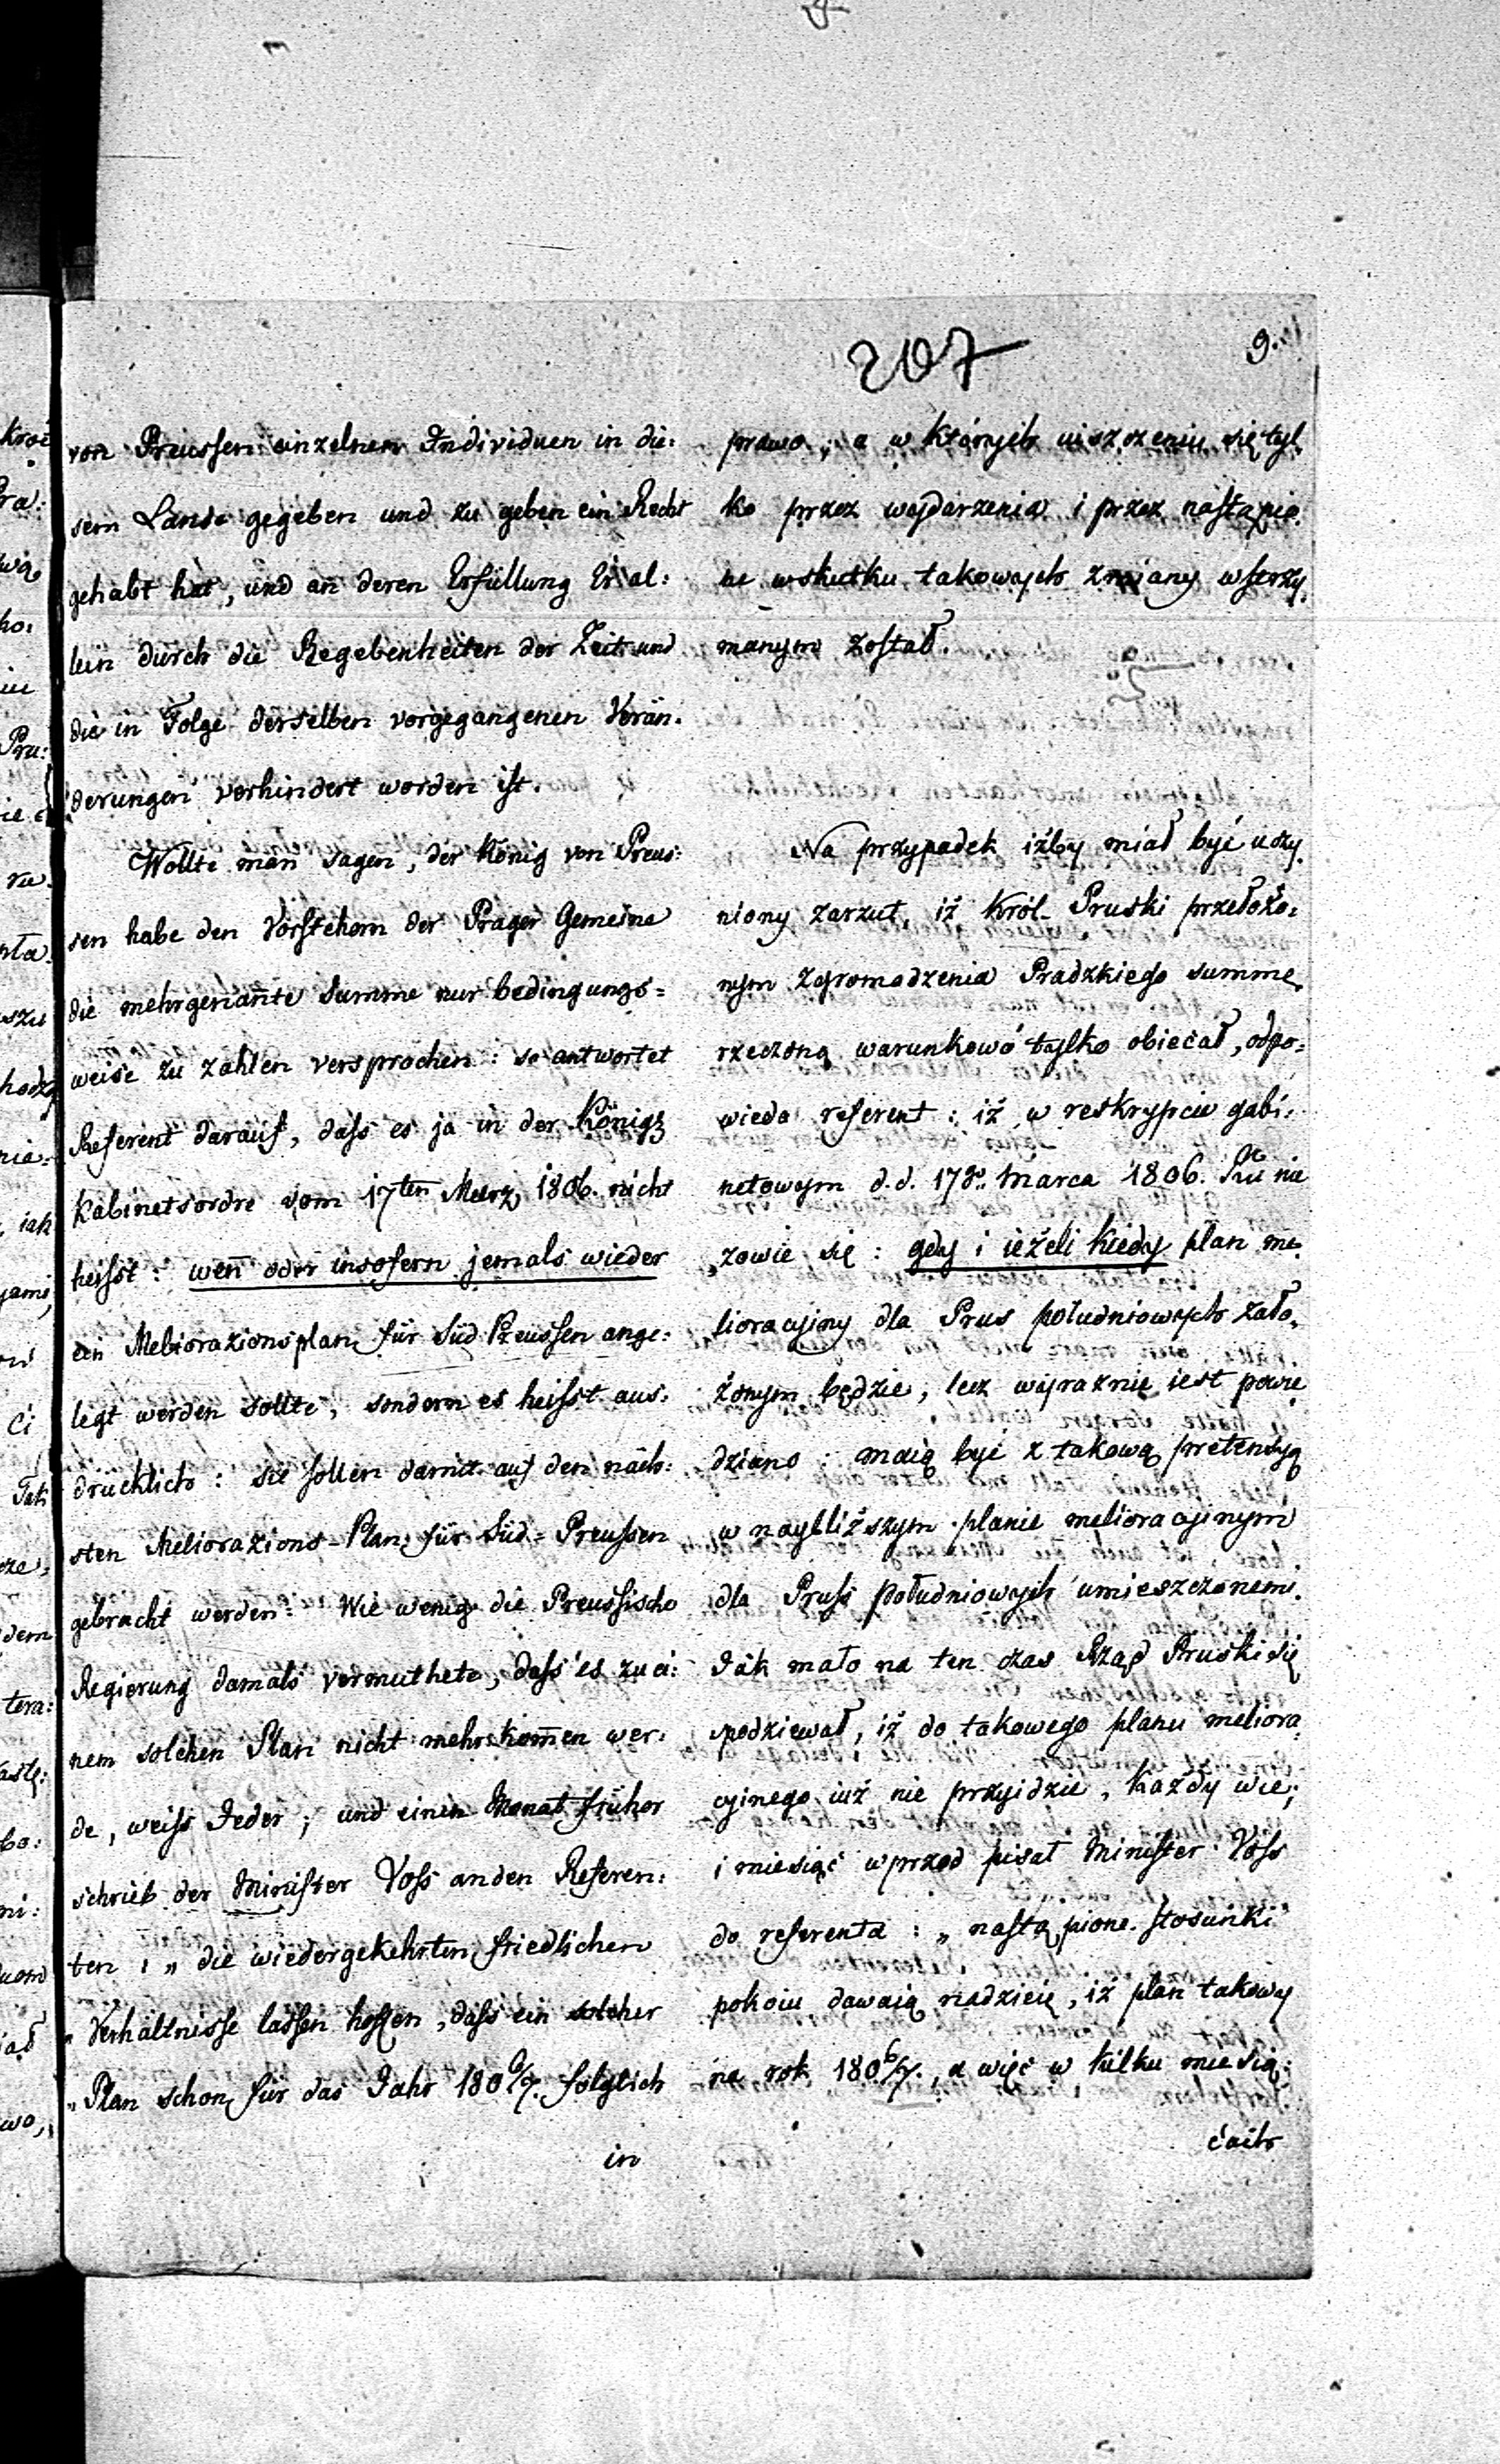 207
9.
von Preussen einzelnen Individuen in die:
sem Lande gegeben und zu geben ein Recht
gehabt hat, und an̄ deren Erfüllung Er al:
lein durch die Begebenheiten der Zeit und
die in Folge derselben vorgegangenen Verän:
derungen verhindert worden ist.
Wollte man sagen, der König von Preus:
sen habe den Vorstehern der Prager Gemeine
die mehrgenan̄te Summe nur bedingungs=
weise zu zahlen versprochen: so antwortet
Referent darauf, daſs es ja in der Königl
Kabinetsordre vom 17ten Maerz 1806. nicht
heiſst: wen̄ oder insofern jemals wieder
ein Meliorazionsplan für Süd Preussen ange:
legt werden sollte, sondern es heiſst aus:
drücklich: sie sollen damit auf den näch:
sten Meliorazions-Plan für Süd-Preuſsen
gebracht werden. Wie wenig die Preussische
Regierung damals vermuthete, daſs es zu ei:
nem solchen Plan nicht mehr kom̄en wer:
de, weiſs Jeder; und einen Monat früher
schrieb der Minister Voſs an den Referen:
ten: „ die wiedergekehrten friedlichen
„ Verhältnisse lassen hoffen, daſs ein solcher
„ Plan schon für das Jahr 1806/7. folglich
in
prawo, a w których uiszczeniu się tyl
ko przez wydarzenia i przez nastąpio
ne w skutku takowych zmiany wstrzy
manym został.
Na przypadek iżby miał być uczy
niony zarzut, iż Król Pruski przełożo:
nym Zgromadzenia Pradzkiego summę
rzeczoną warunkowo tylko obiecał, odpo:
wieda referent: iż w reskrypcie gabi:
netowym d.d. 17go Marca 1806. Ru nie
zowie się: gdy i ieżeli kiedy plan me
lioracyiny dla Prus południowych zało,
żonym będzie, lecz wyraznie iest powie
dziano: maią być z takową pretensyą
w naybliższym planie melioracyinym
dla Pruſs południowych umieszczonemi.
Jak mało na ten czas Rząd Pruski się
spodziewał, iż do takowego planu meliora
cyinego iuż nie przyidzie, każdy wie;
i miesiąc wprzod pisał Minister Voſs
do referenta: „ nastąpione stosunki
pokoiu dawaią nadzieię, iż plan takowy
na rok 1806/7., a więc w kilku miesią:
cach